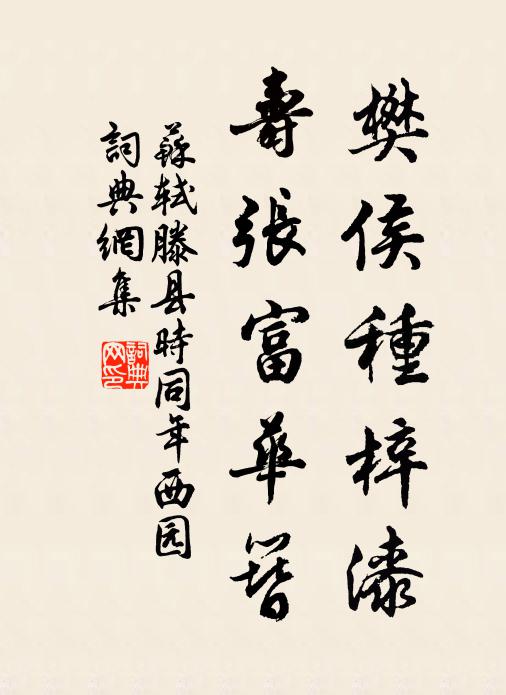 樊侯種梓漆
壽張富華簪
蘇軾滕县時同年西园
詞典網集
詞典网印